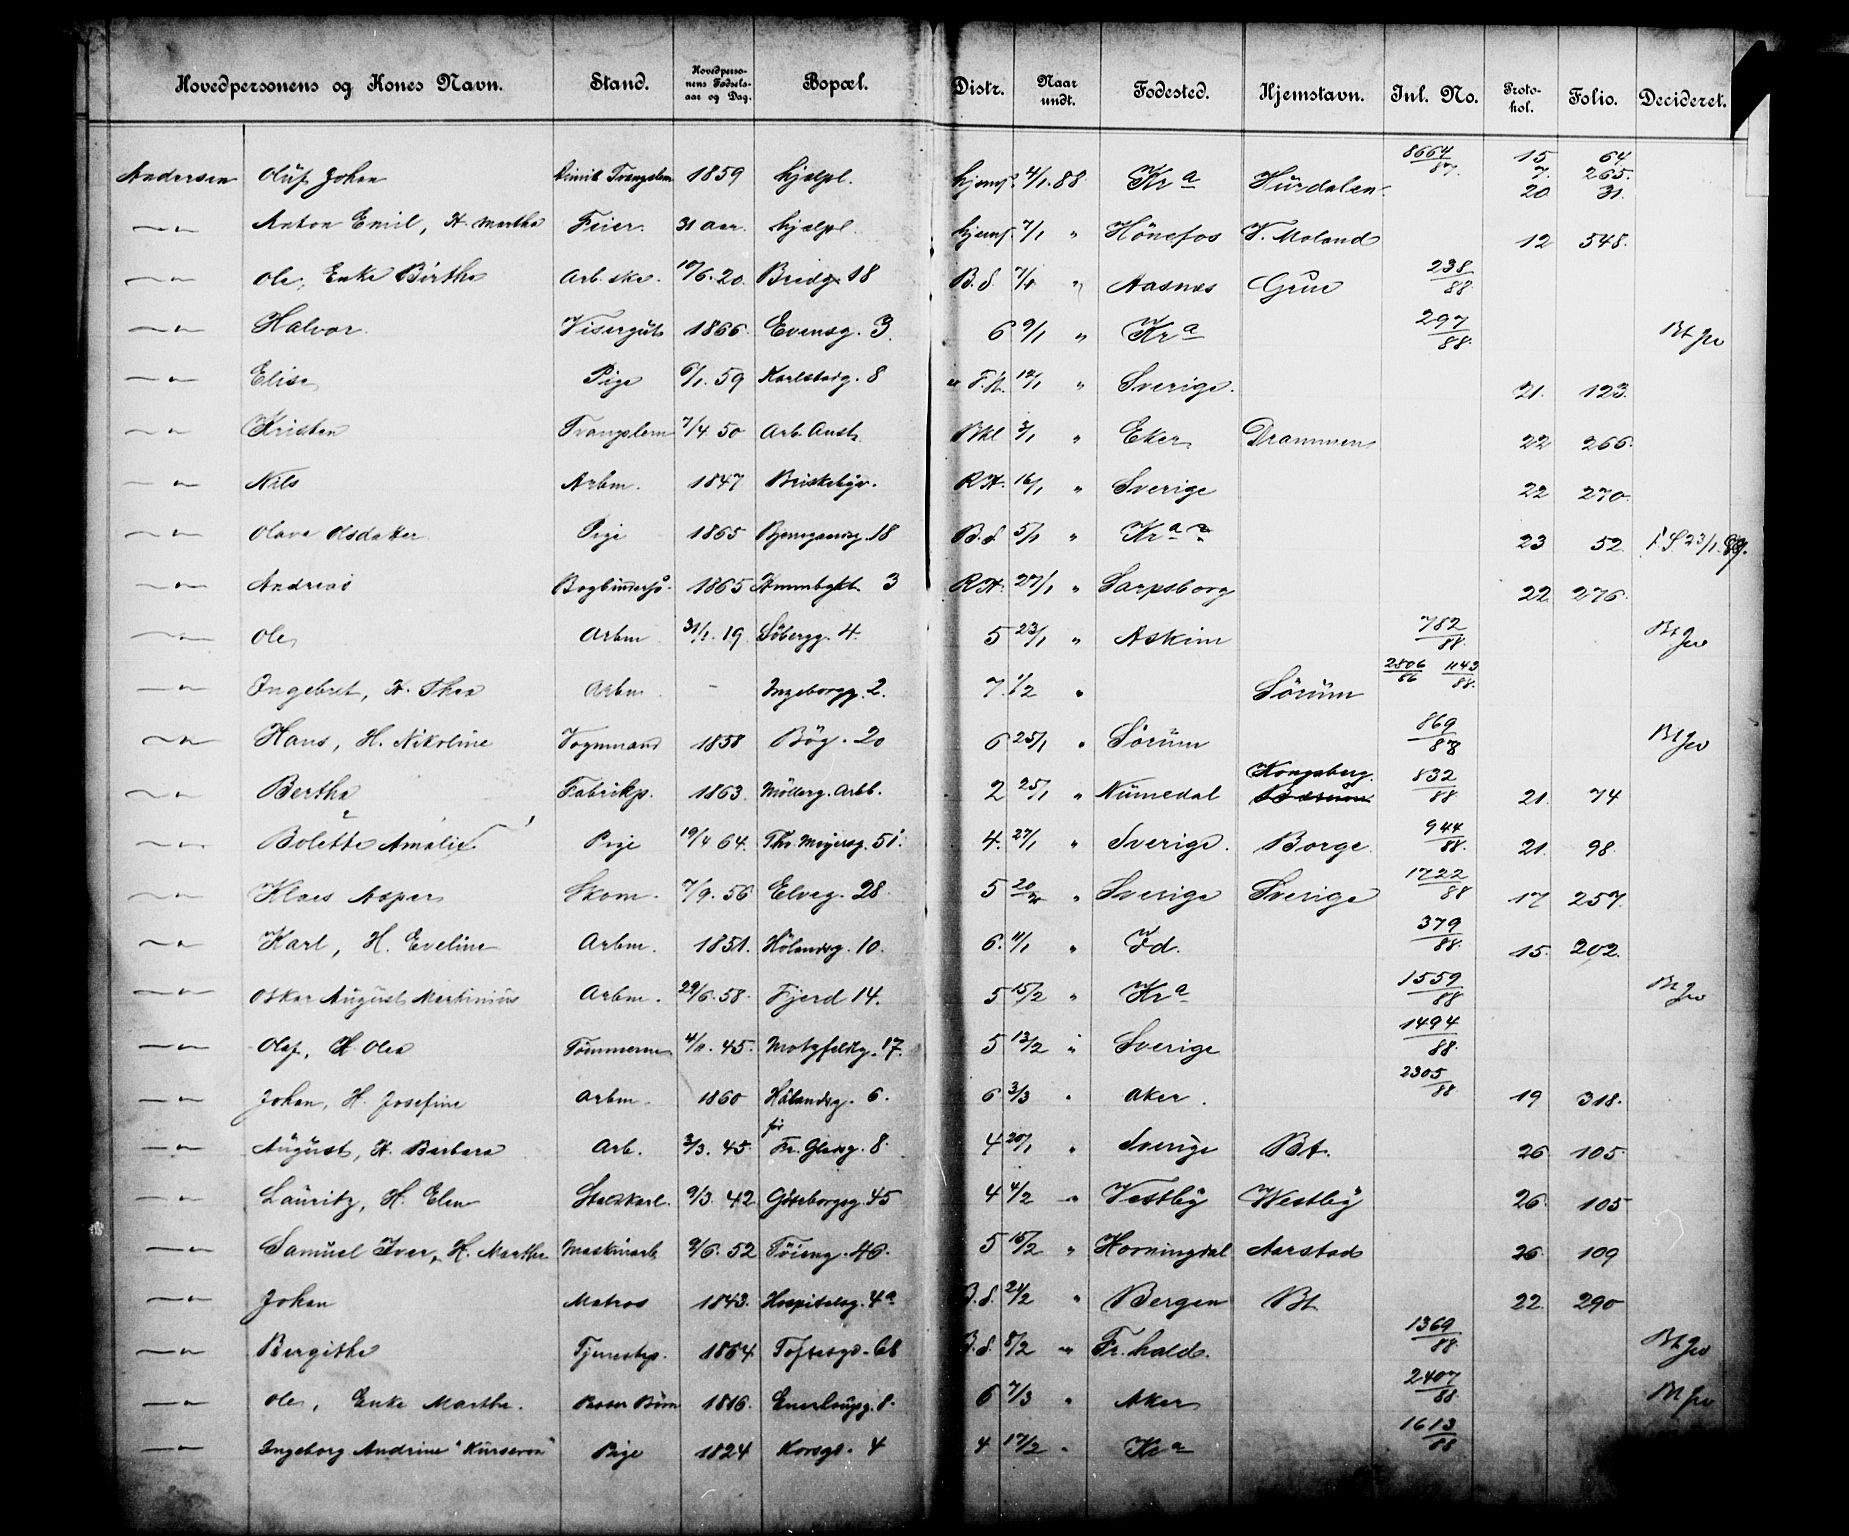 Hovedpersonens og Kones Navn. Stand. Hovedperso-nens Fødsels-aar og Dag. Bopæl. Distr. Naar undt. Fødested. Hjemstavn. Inl. No. Proto-kol. Folio. Decideret.
Andersen Oluf Johan Tvangslem 1859 hjælpl. hjemf. 4/1. 88. Kra Hurdalen. 8664/87. 15 64 7. 265. 20 31.
—"— Anton Emil, H. Martha Feier. 31 aar. hjælpl. hjemf. 7/1 " Hönefos V. Moland 12 548.
—"— Ole, Enke Birthe Arb.ske. 10/6. 20. Bredg 18 B.d. 7/1 " Aasnes Grue 238/88
—"— Halvor. Visergut 1866. Evensg. 3. 6 9/1 " Kra 297/88. Bt jv
—"— Elise Pige 6/1. 59 Karlstadg. 8 12/1 " Sverige. 21. 123.
—"— Kristen Tvangslem 7/4. 50 Arb. Anst. Bkl 3/1 " Eker Drammen 22 266.
—"— Nils Arbm. 1847 Briskebyv. RH. 16/1 " Sverige 22 270.
—"— Olava Olsdatter Pige 1865 Bjerregaardsg. 18 B.d. 5/1 " Kra 23 52. 23/1. 89.
—"— Andreas Bogbindersv. 1865 3 RH. 27/1 " Sarpsborg 22 276.
—"— Ole Arbm 31/1. 19. Söbergg. 4. 5 23/1 " Askim 782/88. Bt jv
—"— Ingebret, H. Thea Arbm. - Ingeborgg. 2. 7. 1/2 " Sörum 2806/86 1143/88.
—"— Hans, H. Nikoline Vognmand 1838 Bög. 20 6 25/1 " Sörum 869/88 Bt jv
—"— Bertha Fabrikp. 1863. Möllerg. Arbb. 2 25/1 " Numedal Kongsberg. Bærum 832/88 21. 74
—"— Bolette Amalie Pige 19/4 64. Th. Meyersg. 51. 4. 27/1 " Sverige. Borge. 944/88. 21. 98.
—"— Klaes Asper Skom. 7/9. 56 Elveg. 28. 5 20/2 " Sverige Sverige 1722/88 17 257.
—"— Karl, H. Eveline Arbm. 1851. Hölandsg. 10. 6. 11/1 " Fd. 379/88. 15. 202.
—"— Oskar August Martinius Arbm. 29/6. 58. Fjerd 14. 5 15/2 " Kra 1559/88 Bt jv
—"— Olaf, H. Olea Tömmerm 4/11. 45. Motzfeldtg. 17. 5 13/2 " Sverige 1494/88.
—"— Johan, H. Josefine Arbm. 1860 Hölandsg. 6. 6 3/3 " Aker. 2305/88 19 318.
—"— August, H. Barbara Arb. 3/3. 45. før Fr. Gladsg. 8. 4 20/1 " Sverige Bt. 26 105
—"— Lauritz, H. Elen Stadskarl. 9/3. 42. Göteborgsg 45 4 4/2 " Vestby Westby 26. 105
—"— Samuel Iver, H. Marthe Maskinarb 9/6. 52 Töieng. 46. 5 16/2 " Horningdal Aarstad 26. 109
—"— Johan Matros 1843. Hospitalsg. 4a B.d. 24/2 " Bergen Bt 22. 290
—"— Bergithe Tjenestep. 1864 Toftesgd. 68 B.d. 8/2 " Fr.hald. 1369/88. Bt jv
—"— Ole, Enke Marthe. 1816. Enerhaugsg. 8. 6 7/3 " Aker 2407/88. Bt jv
—"— Ingeborg Andrine "Kurseren" Pige 1824 Korsgd. 4 4 17/2 " Kra 1613/88